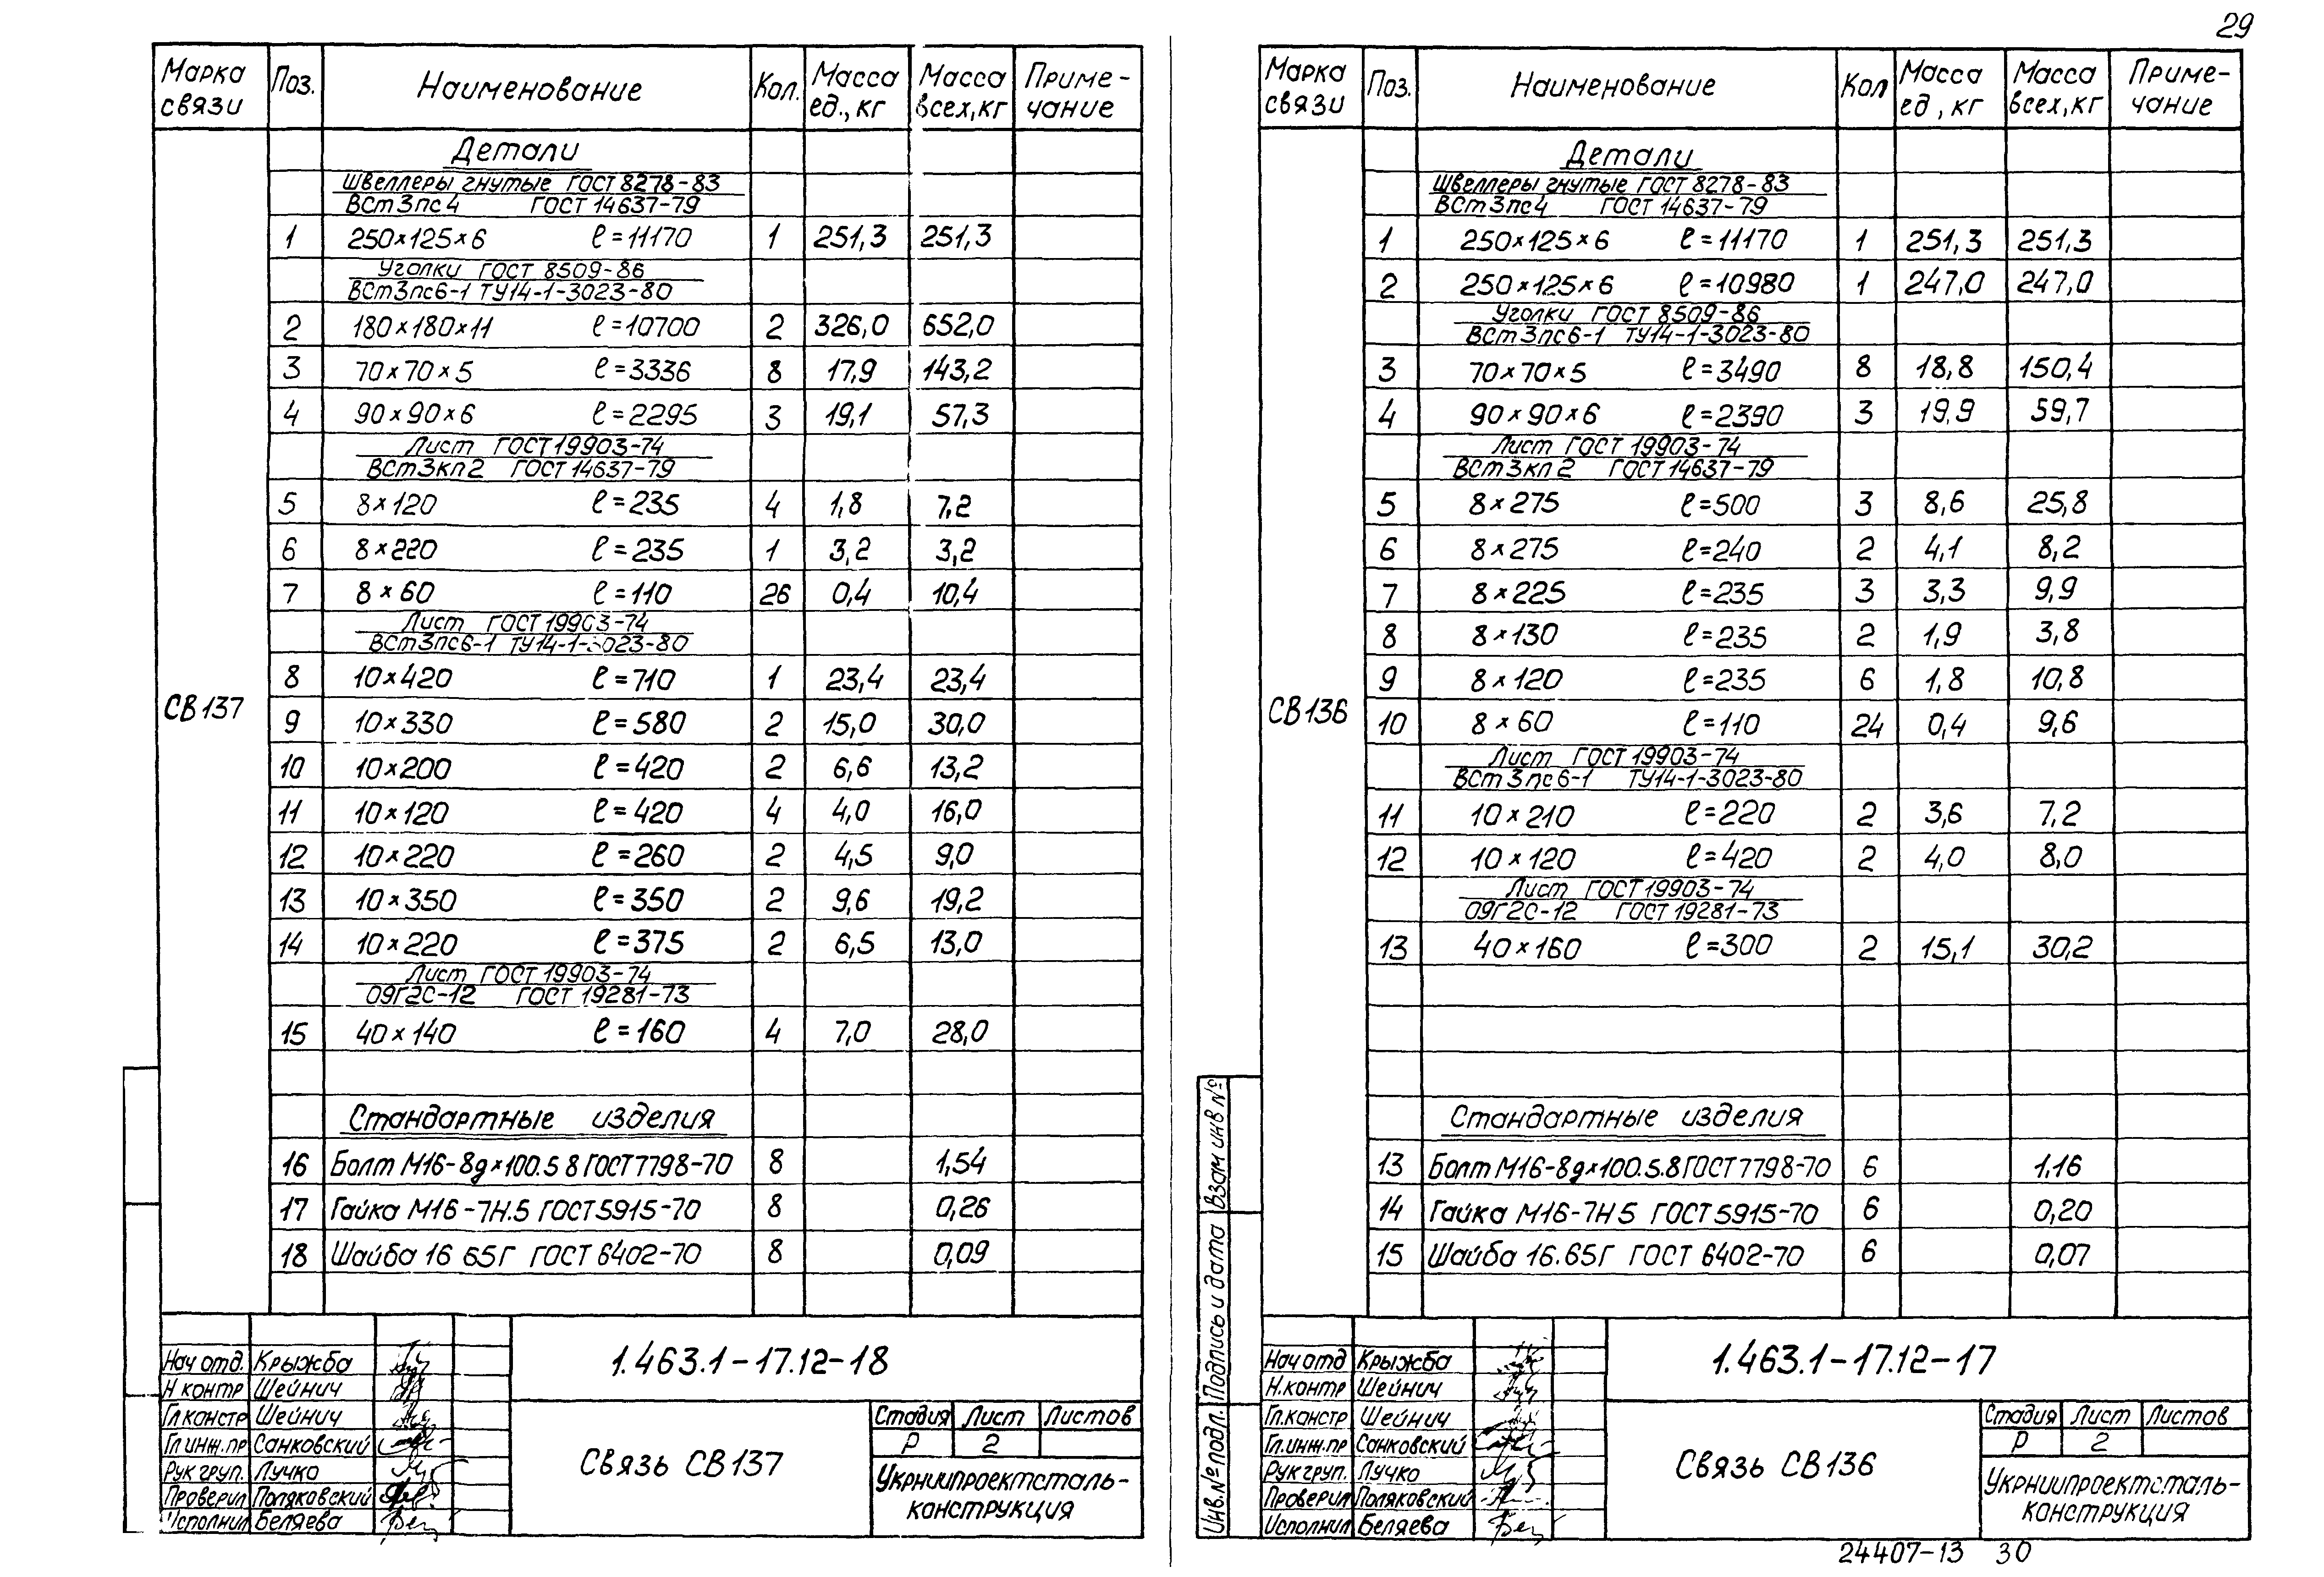 29
Марка связи Поз. Наименование Кол. Масса ед., кг Масса всех, кг Приме-чание
Детали
Швеллеры гнутые ГОСТ 8278-83
ВСт3пс4 ГОСТ 14637-79
1 250×125×6 ℓ=11170 1 251,3 251,3
Уголки ГОСТ 8509-86
ВСт3пс6-1 ТУ14-1-3023-80
2 180×180×11 ℓ=10700 2 326,0 652,0
3 70×70×5 ℓ=3336 8 17,9 143,2
4 90×90×6 ℓ=2295 3 19,1 57,3
Лист ГОСТ 19903-74
ВСт3кп2 ГОСТ 14637-79
5 8×120 ℓ=235 4 1,8 7,2
6 8×220 ℓ=235 1 3,2 3,2
7 8×60 ℓ=110 26 0,4 10,4
Лист ГОСТ 19903-74
ВСт3пс6-1 ТУ14-1-3023-80
8 10×420 ℓ=710 1 23,4 23,4
СВ137
9 10×330 ℓ=580 2 15,0 30,0
10 10×200 ℓ=420 2 6,6 13,2
11 10×120 ℓ=420 4 4,0 16,0
12 10×220 ℓ=260 2 4,5 9,0
13 10×350 ℓ=350 2 9,6 19,2
14 10×220 ℓ=375 2 6,5 13,0
Лист ГОСТ 19903-74
09Г2С-12 ГОСТ 19281-73
15 40×140 ℓ=160 4 7,0 28,0
Стандартные изделия
16 Болт М16-8g×100.5 8 ГОСТ 7798-70 8 1,54
17 Гайка М16-7Н.5 ГОСТ 5915-70 8 0,26
18 Шайба 16 65Г ГОСТ 6402-70 8 0,09
Нач отд. Крыжба
Н контр Шейнич
Гл констр Шейнич
Гл инж. пр Санковский
Рук груп. Лучко
Проверил Поляковский
Исполнил Беляева
1.463.1-17.12-18
Связь СВ137
Стадия Лист Листов
Р 2
Укрниипроектсталь-
конструкция
Марка связи Поз. Наименование Кол Масса ед, кг Масса всех, кг Приме-чание
Детали
Швеллеры гнутые ГОСТ 8278-83
ВСт3пс4 ГОСТ 14637-79
1 250×125×6 ℓ=11170 1 251,3 251,3
2 250×125×6 ℓ=10980 1 247,0 247,0
Уголки ГОСТ 8509-86
ВСт3пс6-1 ТУ14-1-3023-80
3 70×70×5 ℓ=3490 8 18,8 150,4
4 90×90×6 ℓ=2390 3 19,9 59,7
Лист ГОСТ 19903-74
ВСт3кп2 ГОСТ 14637-79
5 8×275 ℓ=500 3 8,6 25,8
6 8×275 ℓ=240 2 4,1 8,2
7 8×225 ℓ=235 3 3,3 9,9
8 8×130 ℓ=235 2 1,9 3,8
9 8×120 ℓ=235 6 1,8 10,8
СВ136
10 8×60 ℓ=110 24 0,4 9,6
Лист ГОСТ 19903-74
ВСт3пс6-1 ТУ14-1-3023-80
11 10×210 ℓ=220 2 3,6 7,2
12 10×120 ℓ=420 2 4,0 8,0
Лист ГОСТ 19903-74
09Г2С-12 ГОСТ 19281-73
13 40×160 ℓ=300 2 15,1 30,2
Стандартные изделия
13 Болт М16-8g×100.5.8 ГОСТ 7798-70 6 1,16
14 Гайка М16-7Н 5 ГОСТ 5915-70 6 0,20
15 Шайба 16.65Г ГОСТ 6402-70 6 0,07
Взам инв №
Подпись и дата
Инв. № подл.
Нач отд Крыжба
Н.контр Шейнич
Гл.констр Шейнич
Гл.инж.пр Санковский
Рук груп. Лучко
Проверил Поляковский
Исполнил Беляева
1.463.1-17.12-17
Связь СВ136
Стадия Лист Листов
Р 2
Укрниипроектсталь-
конструкция
24407-13 30